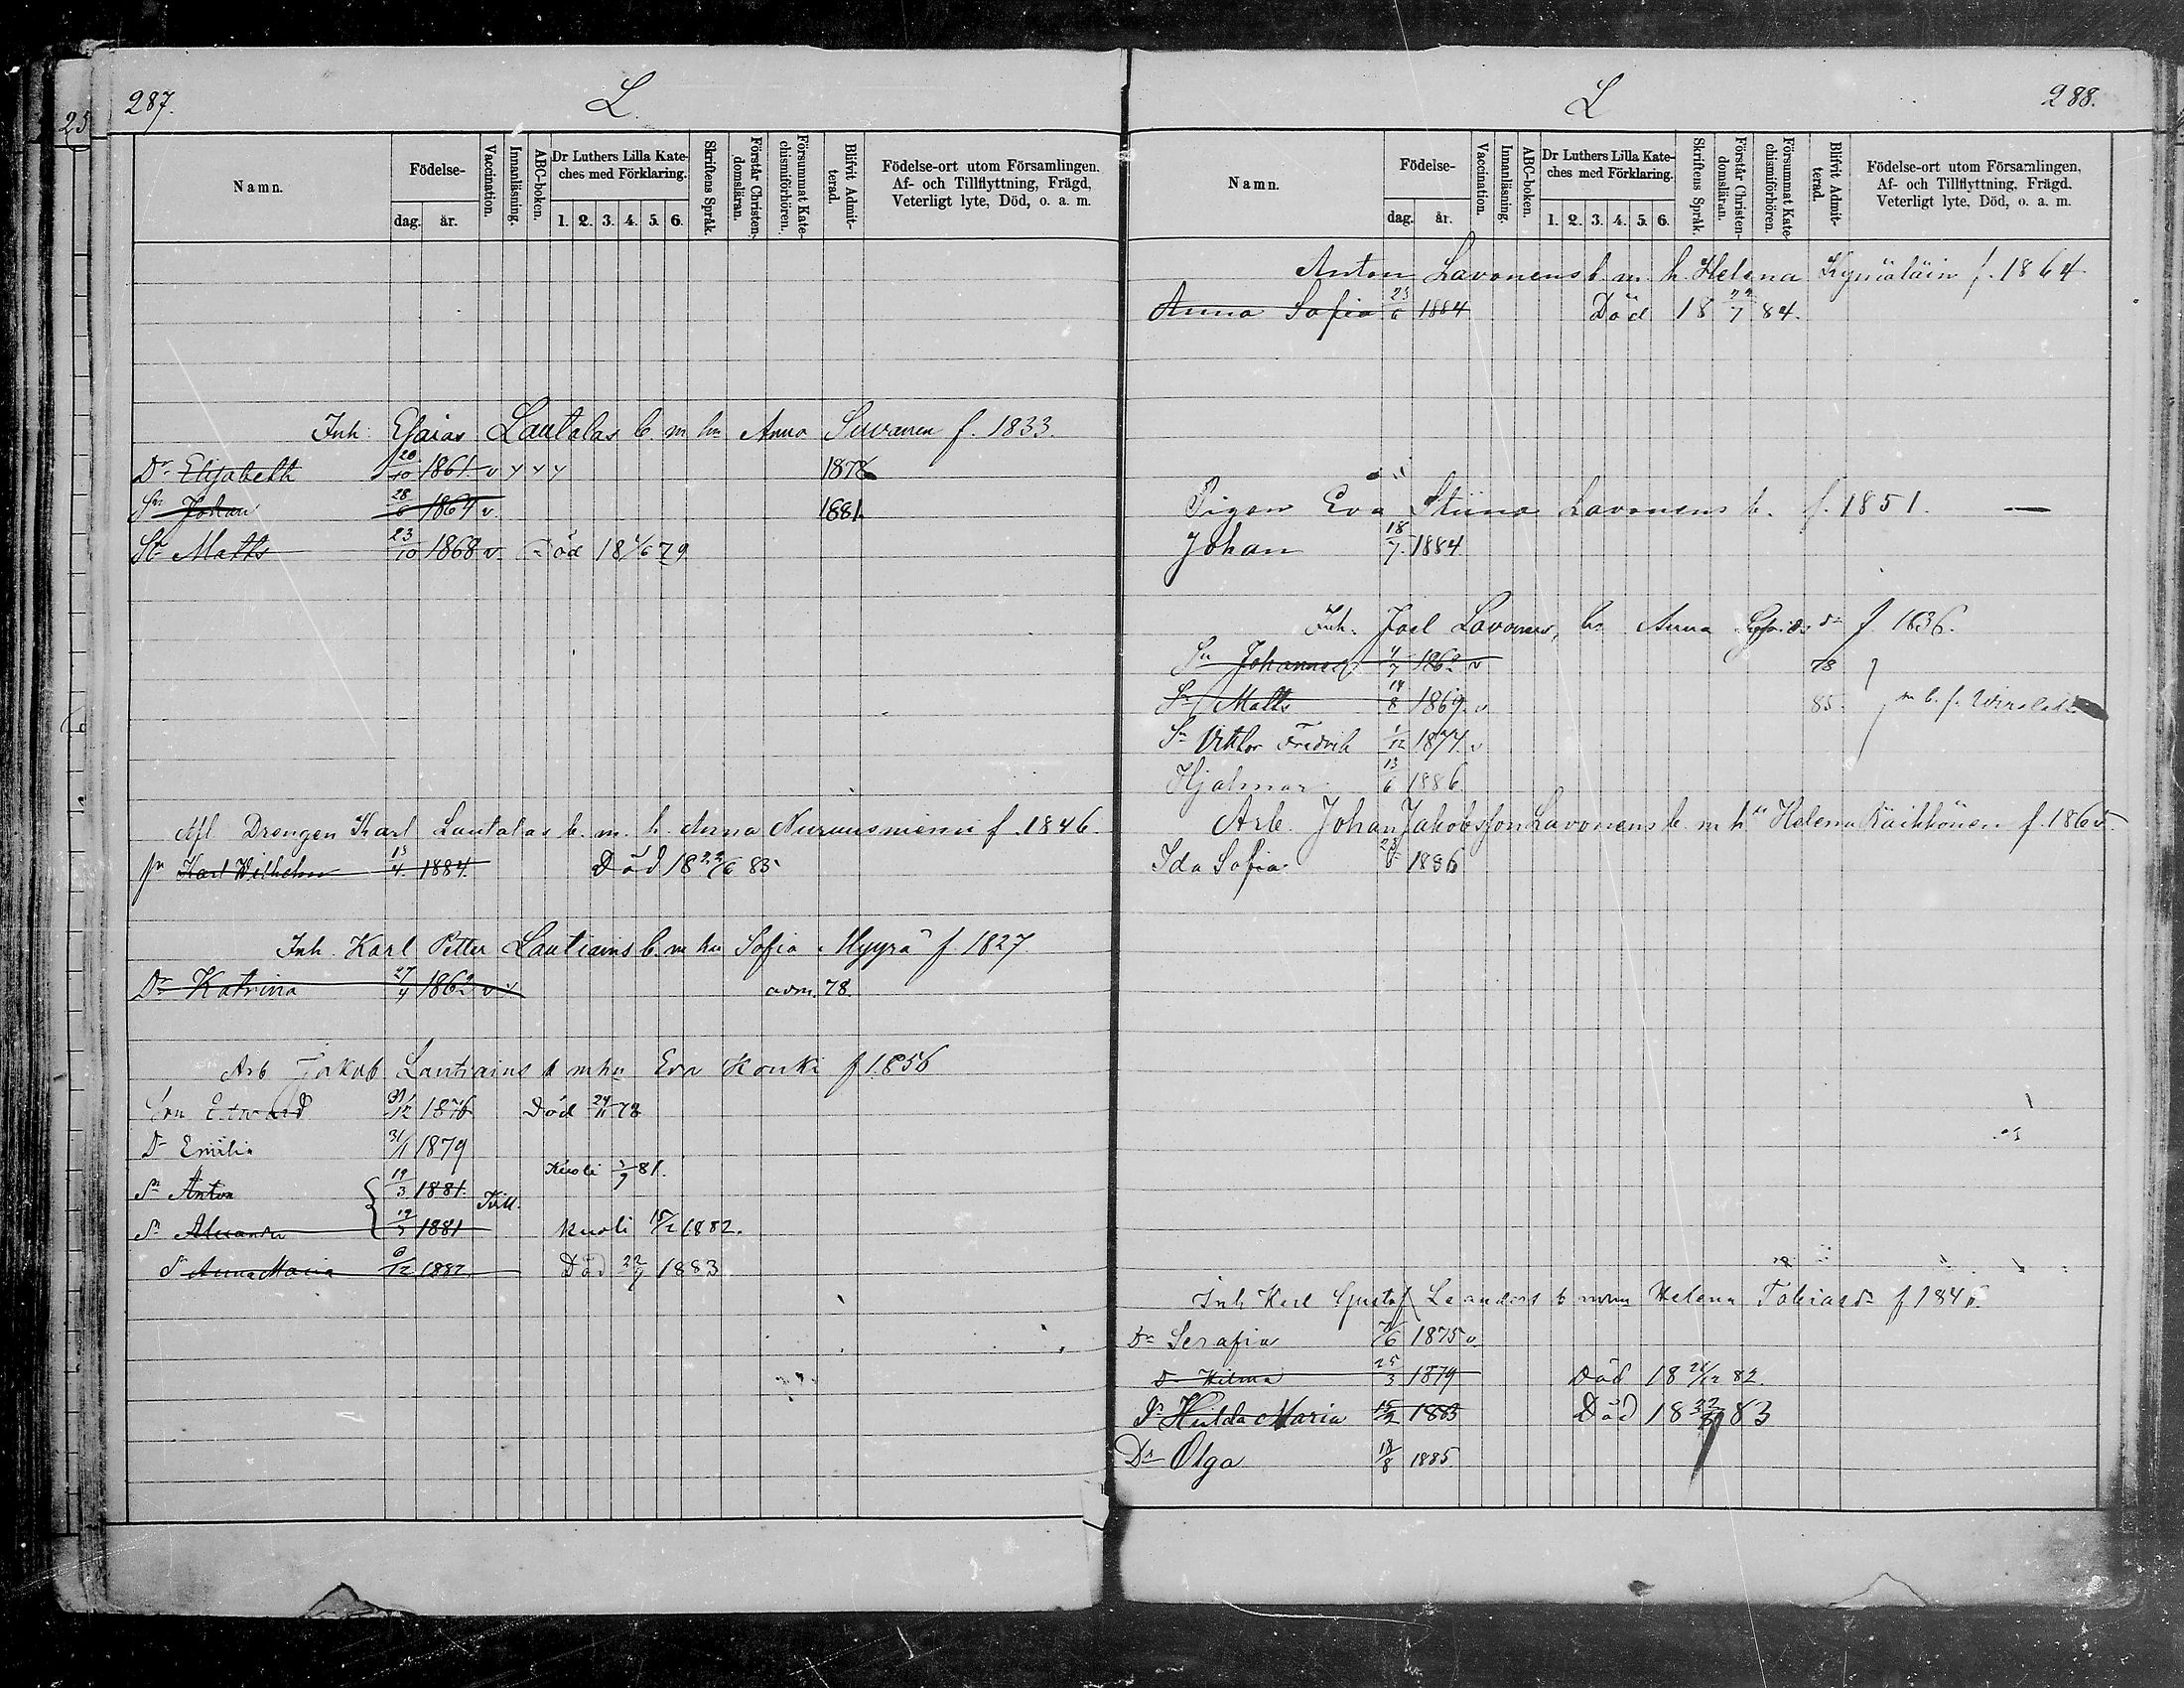 287.
L.
Namn.
Födelse-
dag. år.
Vaccination.
Innanläsning.
ABC-boken.
Dr Luthers Lilla Kate-
ches med Förklaring.
1. 2. 3. 4. 5. 6.
Skriftens Språk.
Förstår Christen-
domsläran.
Försummat Kate-
chismiförhören.
Blifvit Admit-
terad.
Födelse-ort utom Församlingen.
Af- och Tillflyttning, Frägd,
Veterligt lyte, Död, o. a. m.
Inh. Esaias Lautalas b. m. hu Anna Suvanen f. 1833.
Dr Elisabeth 20/10 1861 v 1878
Sn Johan 28/6 1864 v. 1881.
Sn Matts 23/10 1868 v. Död 18 1/6 79
Afl. Drengen Karl Lautalas b. m. h. Anna f. 1846.
Sn Karl Wilhelm 13/4 1884. Död 18 22/6 85
Inh. Karl Petter Lautiains b. m hu Sofia Hyyrä f. 1827
Dr Katrina 27/4 1862 v v adm. 78.
Arb Jakob Lautiains b m hu Eva Konki f 1856
Son Edward 31/12 1876 Död 24/11 78
Dr Emilia 31/1 1879
Sn Anton 19/3 1881. Kuoli 81.
Till.
Sn Alexander 19/3 1881 Kuoli 15/2 1882.
Anna Maria 6/12 1882 Död 22/9 1883
L
288.
Namn.
Födelse-
dag. år.
Vaccination.
Innanläsning.
ABC-boken.
Dr Luthers Lilla Kate-
ches med Förklaring.
1. 2. 3. 4. 5. 6.
Skriftens Språk.
Förstår Christen-
domsläran.
Försummat Kate-
chismiförhören.
Blifvit Admit-
terad.
Födelse-ort utom Församlingen,
Af- och Tillflyttning, Frägd.
Veterligt lyte, Död, o. a. m.
Anton Lavonens b. m. h. Helena f. 1864
Anna Sofia 23/6 1884 Död 18 /7 84.
Pigan Eva Stiina Lavonens b. f. 1851.
Johan 18/7 1884
Inh. Joel Lavonens, hu Anna f. 1836.
Sn Johannes 4/7 1862 v 78
Sn Matts 14/8 1869 v 85. m b. f.
Sn Viktor Fredrik 1/12 1874 v
Hjalmar 13/6 1886
Arb. Johan Jakobsson Lavonens b. m h Helena Räikkönen f. 1865.
Ida Sofia 1886
Inh Karl Gustaf Leanders b Helena Tobiasdr f 184
Dr Serafia 1875 v.
D Hilma 25/3 1879 Död 18 82.
Dr Hulda Maria 15/2 1883 Död 18 83
Dr Olga 18/8 1885